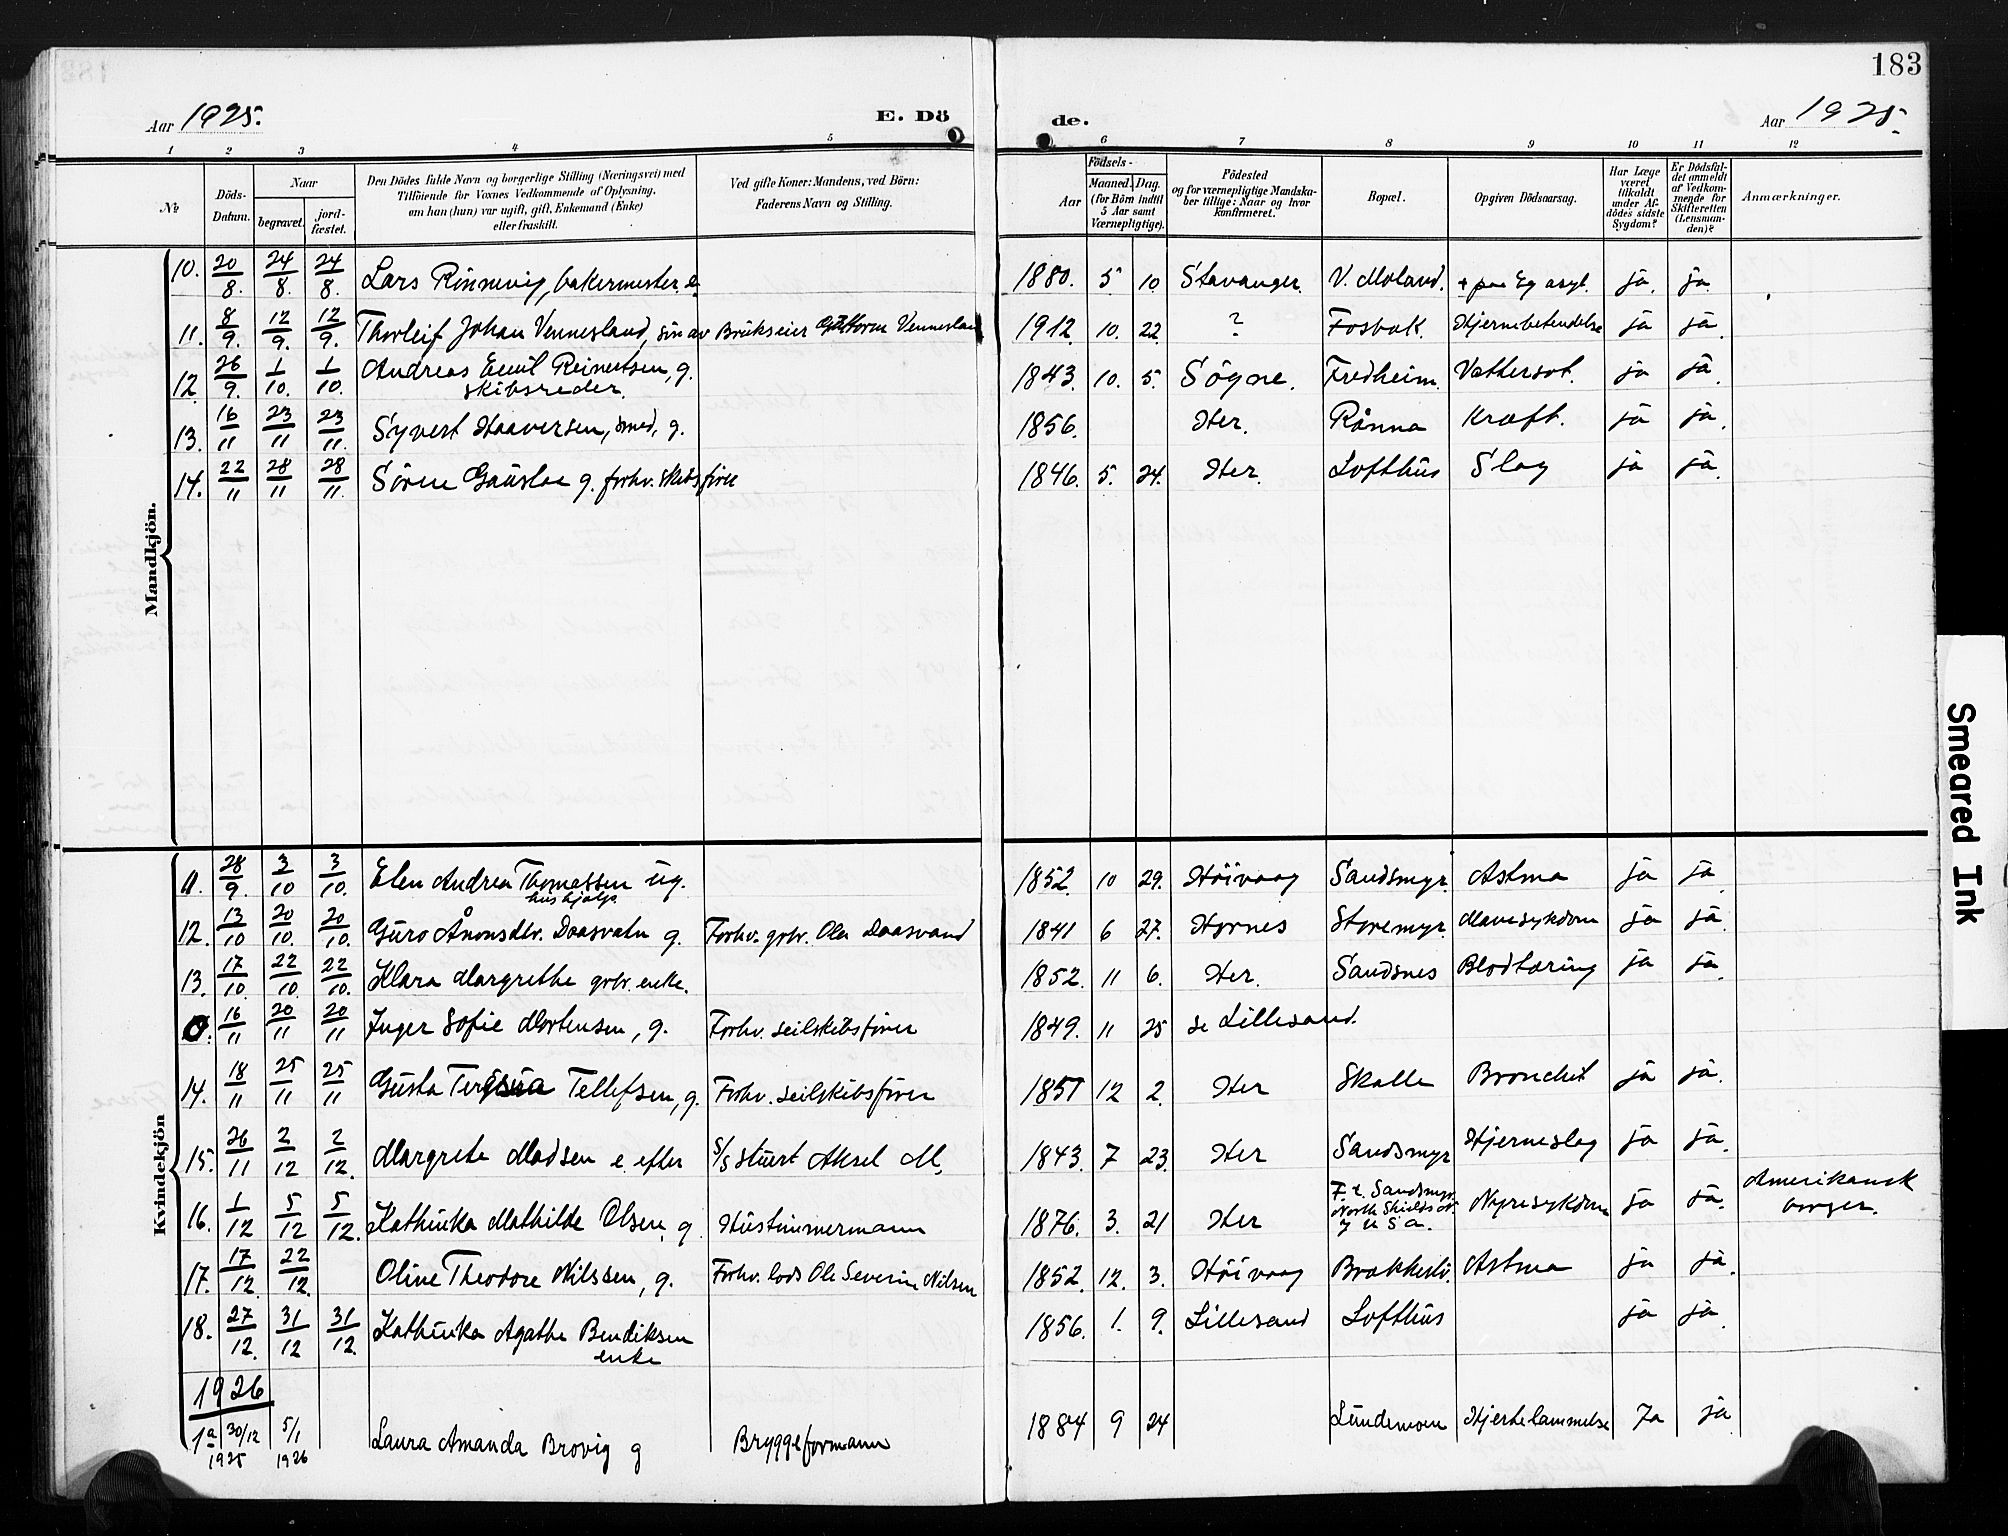 183
Aar 1925.
E. Dö
de.
Aar 1925.
1 2 3 4 5 6 7 8 9 10 11 12
№
Döds-Datum.
Naar
begravet.
jord-fæstet.
Den Dödes fulde Navn og borgerlige Stilling (Næringsvei) med
Tilföiende for Voxnes Vedkommende af Oplysning,
om han (hun) var ugift, gift, Enkemand (Enke)
eller fraskilt.
Ved gifte Koner: Mandens, ved Börn:
Faderens Navn og Stilling.
Födsels-
Aar
Maaned. Dag.
(for Börn indtil
5 Aar samt
Værnepligtige).
Födested
og for værnepligtige Mandska-
ber tillige: Naar og hvor
konfirmeret.
Bopæl.
Opgiven Dödsaarsag.
Har Læge
været
tilkaldt
under Af-
dödes sidste
Sygdom?
Er Dödsfal-
det anmeldt
af Vedkom-
mende for
Skifteretten
(Lensman-
den)?
Anmærkninger.
Mandkjön.
10. 20/8. 24/8. 24/8. Lars Rönnevig, bakermester. e. 1880. 5 10. Stavanger. V. Moland. + paa Eg asyl. ja. ja
11. 8/9. 12/9. 12/9. Thorleif Johan Vennesland, sön av Brukseier Vennesland 1912. 10. 22. ? Fosbæk. Hjernebetendelse ja ja.
12. 26/9. 1/10. 1/10. Andreas Emil Reinertsen, g. skibsreder. 1843. 10. 5. Sögne. Fredheim. Vattersot. ja ja.
13. 16/11 23/11 23/11. Syvert Haaversen, smed, g. 1856. Her. Rönna Kræft. ja ja.
14. 22/11 28/11 28/11. Sören Gauslaa g. forhv. skibsförer 1846. 5. 24. Her Lofthus Slag ja ja.
Kvindekjön
11. 28/9. 3/10 3/10. Elen Andrea Thomassen ug. hushjælp 1852. 10 29. Höivaag Sandsmyr. Astma ja ja.
12. 13/10 20/10. 20/10. Guro Ånonsdtr. Daasvatn g. Forhv. grbr. Ola Daasvand 1841 6 27. Hornes Storemyr. Mavesykdom ja ja.
13. 17/10. 22/10. 22/10. Klara Margrethe grbr. enke. 1852. 11 6. Her. Sandsnes Blodtæring ja ja.
0. 16/11 20/11 20/11 Inger Sofie Mortensen, g. Forhv. seilskibsförer 1849. 11 25 se Lillesand.
14. 18/11 25/11 25/11 Gusta Tellefsen, g. Forhv. seilskibsförer 1851 12 2. Her Skalle Bronchit ja ja.
15. 26/11 2/12 2/12. Margrete Madsen e. efter S/S stuert Aksel M. 1843. 7 23. Her Sandsmyr Hjerneslag ja ja.
16. 1/12 5/12 5/12. Kathinka Mathilde Olsen, g Hustimmermann 1876. 3. 21 Her F. t. Sandsmyr North Shields N. Y U S A. Nyresykdom ja ja. Amerikansk borger.
17. 17/12. 22/12. Olive Theodore Nilssen, g. Forhv. lods Ole Severin Nilsen 1852. 12. 3. Höivaag Brækkestö. Astma ja ja.
18. 27/12. 31/12 31/12 Kathinka Agathe Bendiksen enke 1856. 1. 9. Lillesand Lofthus ja ja.
1926
1a 30/12 1925 5/1 1926 Laura Amanda Brovig g Bryggeformann 1884 9 24 Lundemoen Hjertelammelse Ja ja
Smeared Ink